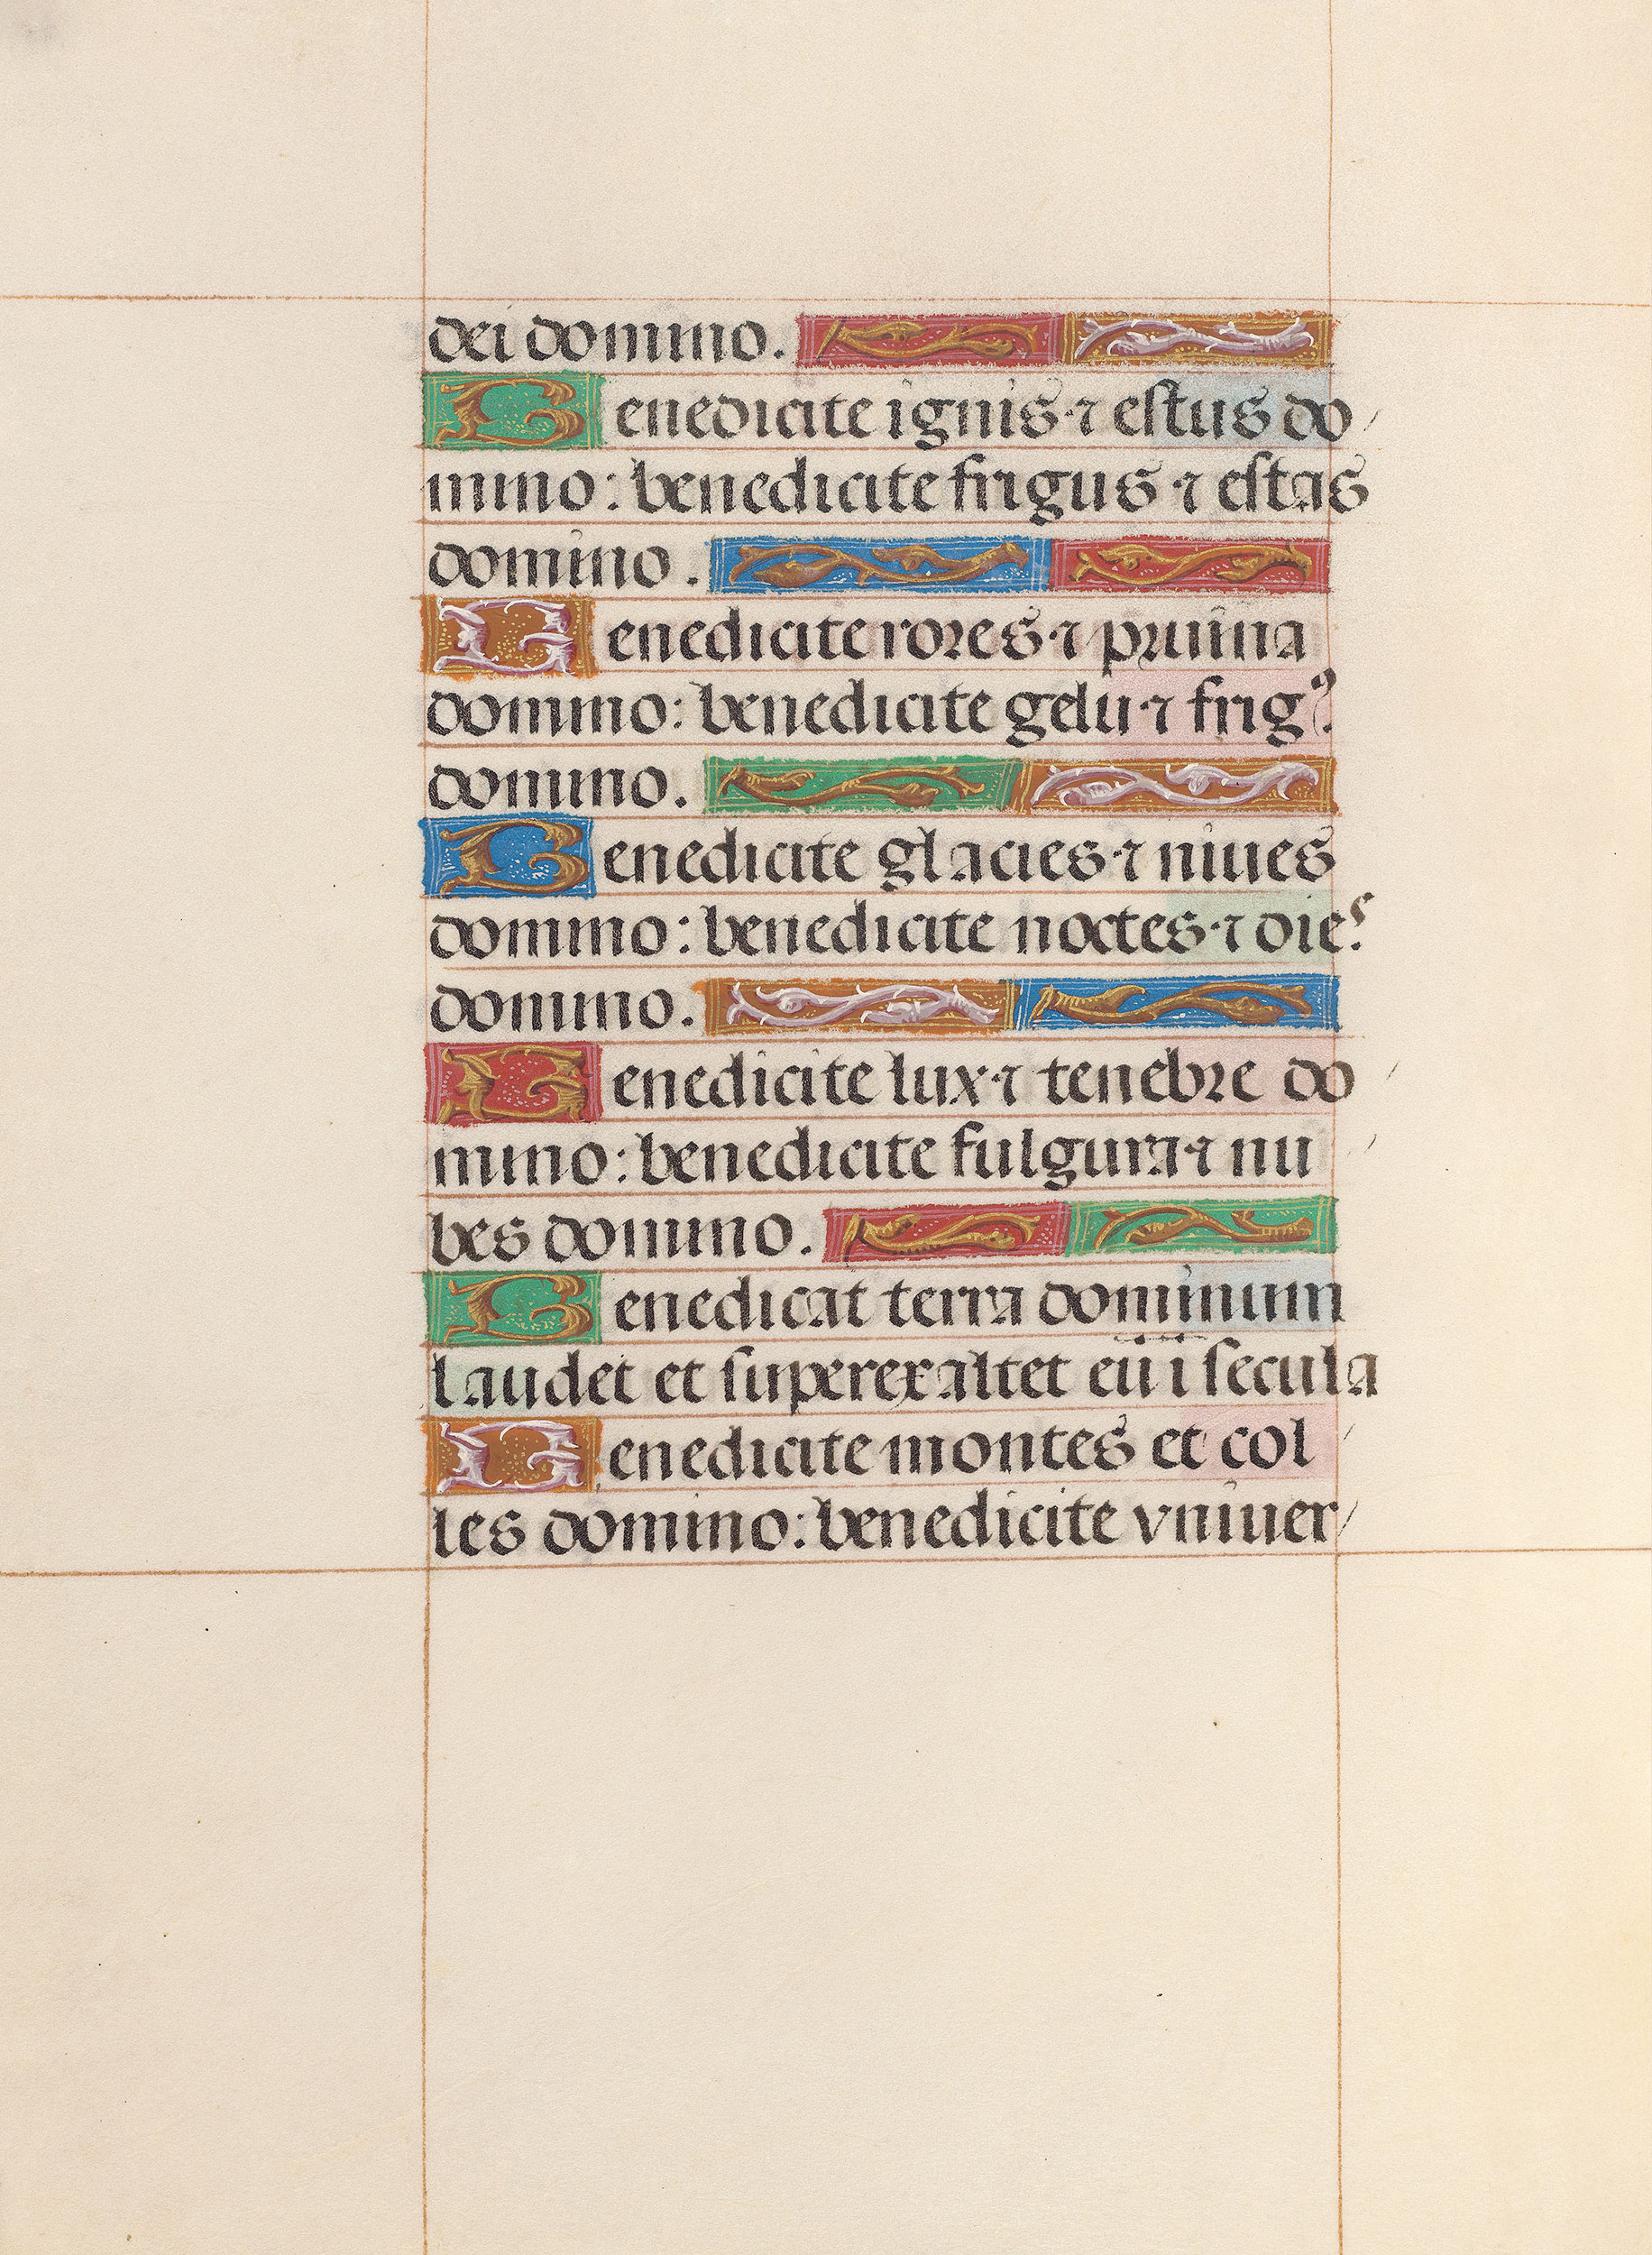 dei domino.
Benedicite ignis ⁊ estus do
mino: benedicite frigus ⁊ estas
domino.
Benedicite rores ⁊ pruina
domino: benedicite gelu ⁊ frigꝰ.
domino.
Benedicite glacies ⁊ niues
domino: benedicite noctes ⁊ dies
domino.
Benedicite lux ⁊ tenebre do
mino: benedicite fulgura ⁊ nu
bes domino.
Benedicat terra dominum
laudet et superexaltet eū ī secula
Benedicite montes et col
les domino: benedicite vniuer